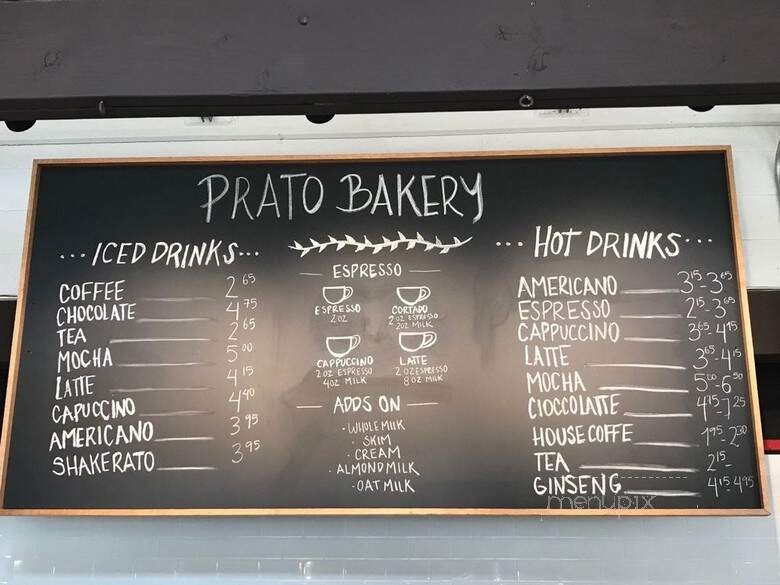 PRATO BAKERY
... ICED DRINKS...
COFFEE 2 65
CHOCOLATE 4 75
TEA 2 65
MOCHA 5 00
LATTE 4 15
CAPUCCINO 4 40
AMERICANO 3 95
SHAKERATO 3 95
ESPRESSO
ESPRESSO
2 OZ
CORTADO
2 OZ ESPRESSO
2OZ MILK
CAPPUCCINO
2 OZ ESPRESSO
4OZ MILK
LATTE
2 OZ ESPRESSO
8 OZ MILK
ADDS ON
• WHOLE MILK
• SKIM
• CREAM
• ALMOND MILK
• OAT MILK
... HOT DRINKS...
AMERICANO 3 15 - 3 65
ESPRESSO 2 15 - 3 65
CAPPUCCINO 3 65 - 4 15
LATTE 3 65 - 4 15
MOCHA 5 00 - 6 50
CIOCCOLATTE 4 75 - 7 25
HOUSE COFFE 1 95 - 2 30
TEA 2 15 -
GINSENG 4 15 - 4 95
menupix